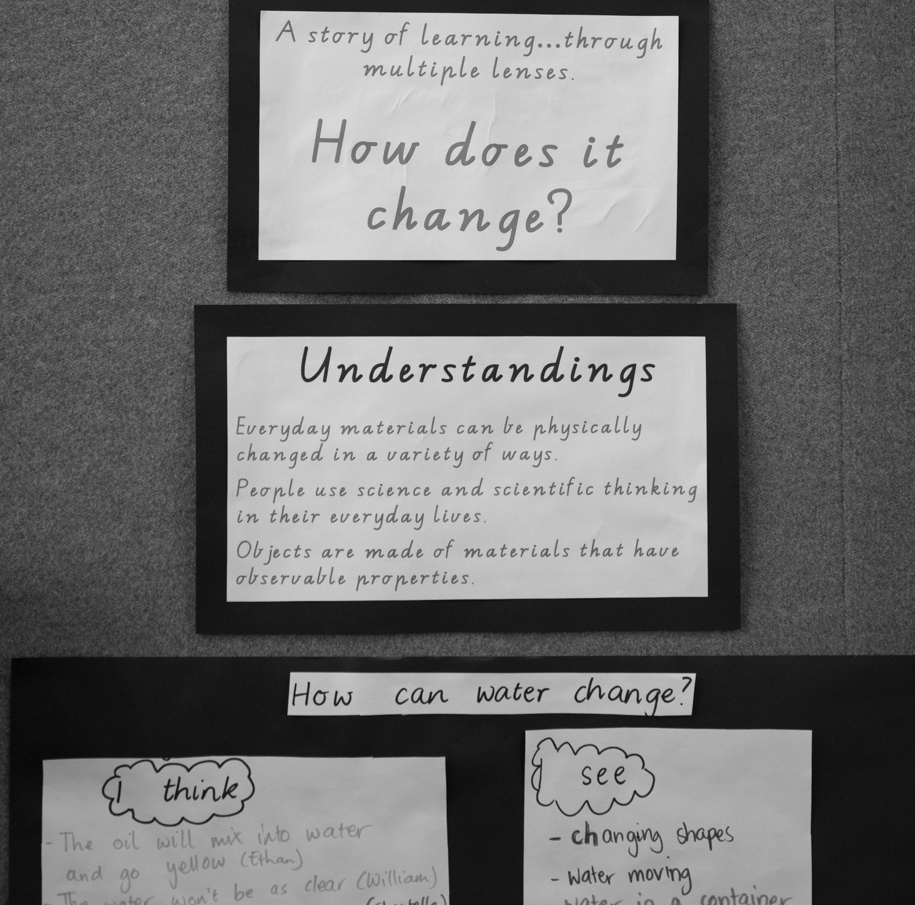 A story of learning...through
multiple lenses.
How does it
change?
Understandings
Everyday materials can be physically
changed in a variety of ways.
People use science and scientific thinking
in their everyday lives.
Objects are made of materials that have
observable properties.
How can water change?
I think
- The oil will mix into water
and go yellow (Ethan)
- The water won't be as clear (William)
I see
- changing shapes
- water moving
water in a container